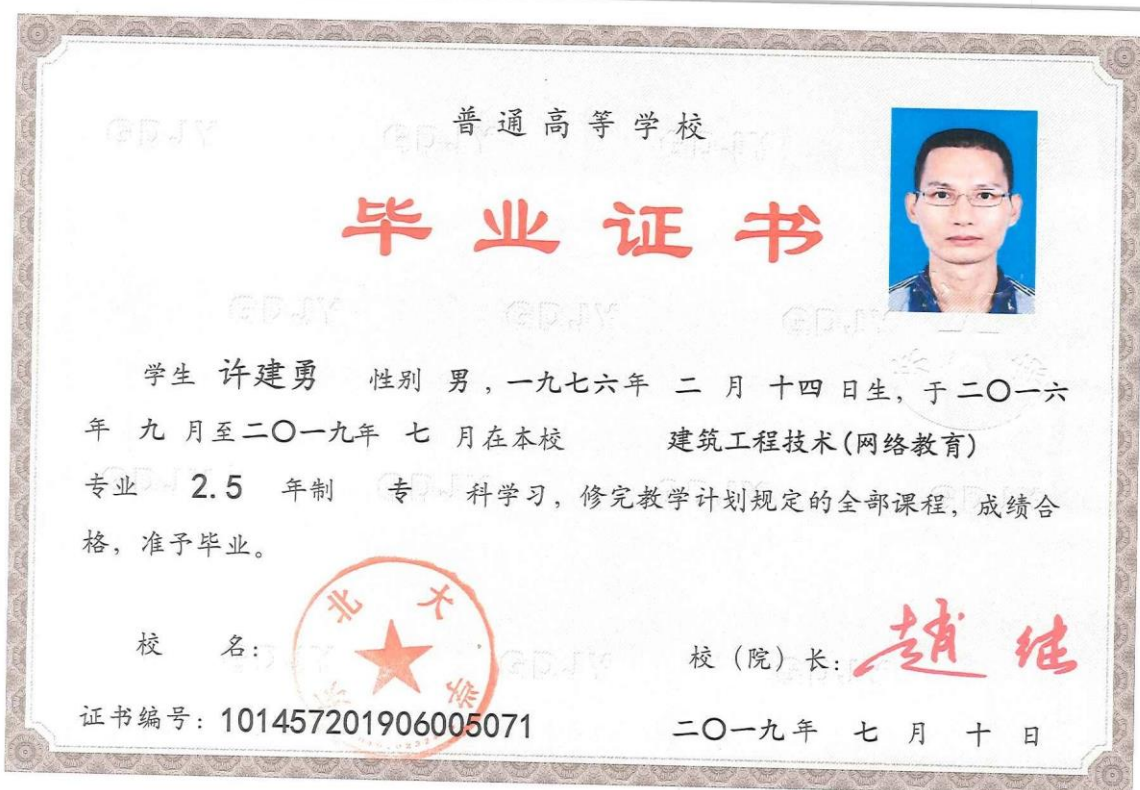 普通高等学校
毕业证书
学生 许建勇 性别 男，一九七六年 二 月 十四 日生，于二〇一六
年 九 月至二〇一九年 七 月在本校 建筑工程技术(网络教育)
专业 2.5 年制 专 科学习，修完教学计划规定的全部课程，成绩合
格，准予毕业。
东北大学
校 名：
校（院）长：赵继
证书编号：101457201906005071
二〇一九年 七 月 十 日